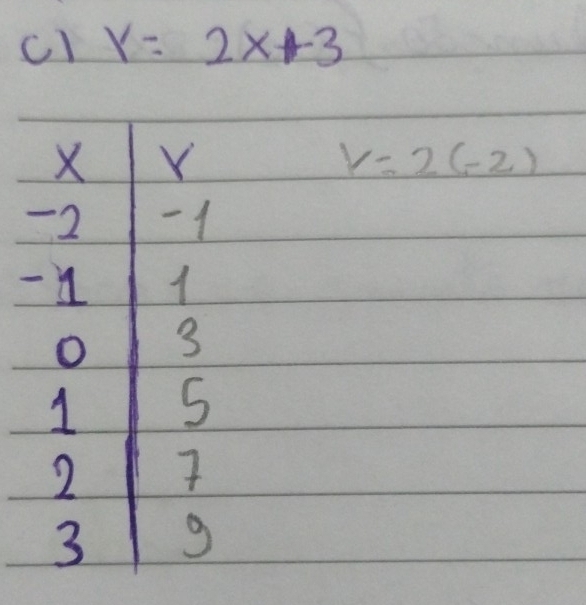 c) Y= 2x+3
X Y Y=2(-2)
-2 -1
-1 1
0 3
1 5
2 7
3 9